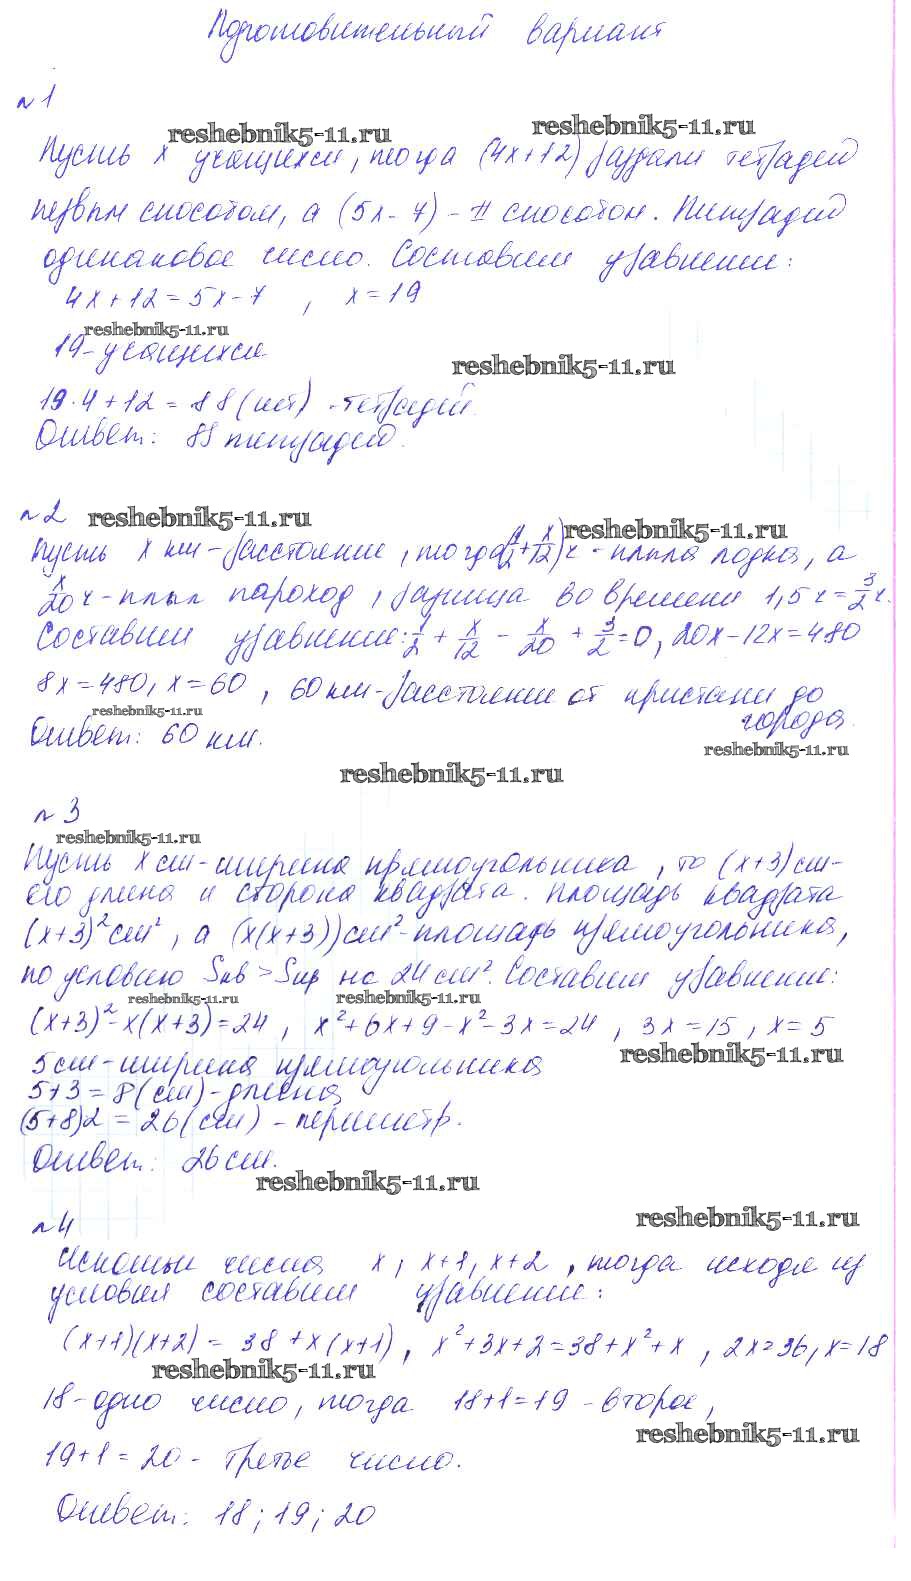 Подготовительный вариант
№1
reshebnik5-11.ru reshebnik5-11.ru
Пусть х учащихся, тогда (4х+12) раздали тетрадей
первым способом, а (5х-7) - II способом. Тетрадей
одинаковое число. Составим уравнение:
4х+12=5х-7 , х=19
reshebnik5-11.ru
19-учащихся
reshebnik5-11.ru
19·4+12=88(шт) -тетрадей.
Ответ: 88 тетрадей.
№2 reshebnik5-11.ru
reshebnik5-11.ru
Пусть х км-расстояние, тогда (1/2+х/12)ч - плыла лодка, а
х/20 ч-плыл пароход, разница во времени 1,5ч=3/2ч.
Составим уравнение: 1/2+х/12-х/20+3/2=0, 20х-12х=480
8х=480, х=60 , 60 км-расстояние от пристани до
города.
reshebnik5-11.ru
Ответ: 60 км.
reshebnik5-11.ru
reshebnik5-11.ru
№3
reshebnik5-11.ru
Пусть х см-ширина прямоугольника, то (х+3)см-
его длина и сторона квадрата. Площадь квадрата
(х+3)²см², а (х(х+3))см²-площадь прямоугольника,
по условию Sкв>Sпр на 24см². Составим уравнение:
reshebnik5-11.ru reshebnik5-11.ru
(х+3)²-х(х+3)=24 , х²+6х+9-х²-3х=24 , 3х=15 , х=5
reshebnik5-11.ru
5см-ширина прямоугольника
5+3=8(см)-длина
(5+8)2=26(см) -периметр.
Ответ: 26см.
reshebnik5-11.ru
reshebnik5-11.ru
№4
Искомые числа х, х+1, х+2 , тогда исходя из
условия составим уравнение:
(х+1)(х+2)=38+х(х+1) , х²+3х+2=38+х²+х , 2х=36, х=18
reshebnik5-11.ru
18-одно число, тогда 18+1=19 -второе,
reshebnik5-11.ru
19+1=20- третье число.
Ответ: 18; 19; 20